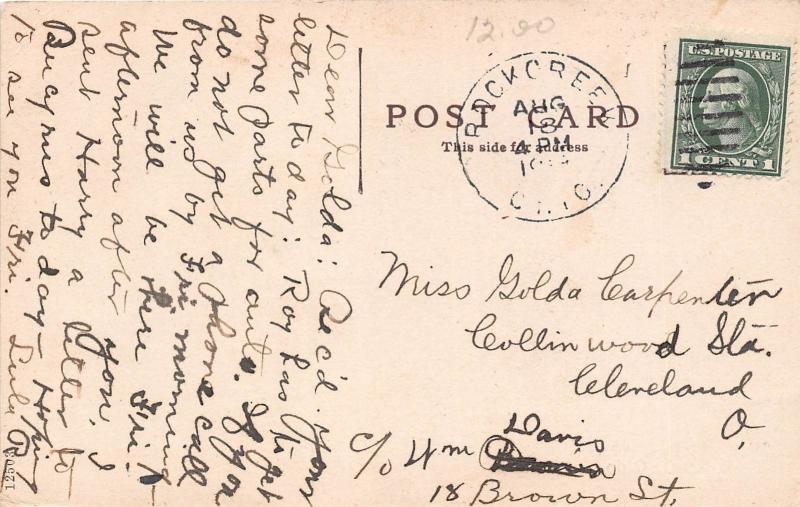 12.00
POST CARD
This side for address
ROCKCREEK
AUG
18
4 PM
OHIO
U.S. POSTAGE
1 CENT 1
Dear Golda: Rec'd your
letter today: Roy has to get
some parts for auto. If you
do not get a phone call
from us by Fri morning
we will be there Fri.
afternoon after you. I
sent Harry a letter to
Bucyrus to day— Hoping
to see you Fri. Lula R
Miss Golda Carpenter
Collinwood Sta.
Cleveland
O,
c/o Wm Davis
18 Brown St.
12503